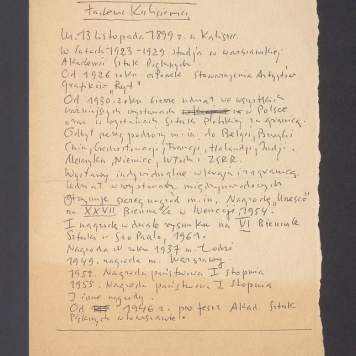 Tadeusz Kulisiewicz
Ur. 13 listopada 1899 r. w Kaliszu.
W latach 1923-1929 studja w warszawskiej
Akademii Sztuk Pięknych.
Od 1926 roku członek Stowarzyszenia Artystów
Grafików "Ryt"
Od 1930 roku bierze udział we wszystkich
ważniejszych wystawach w Polsce
oraz wystawach Sztuki Polskiej zagranicą.
Odbył szereg podróży m.in. do Belgii, Brazylii
Chin, Czechosłowacji, Francji, Holandji, Indji,
Meksyku, Niemiec, Włoch i ZSRR.
Wystawy indywidualne w kraju i zagranicą.
Udział w wystawach międzynarodowych
Otrzymuje szereg nagród m.in. Nagrodę "Unesco"
na XXVII Biennale w Wenecji, 1954.
I nagrodę w dziale rysunku na VI Biennale
Sztuki w Sao Paulo, 1961.
Nagroda w roku 1937 m. Łodzi
1949. nagroda m. Warszawy.
1952. Nagroda państwowa I stopnia
1955. Nagroda państwowa I stopnia
I inne nagrody.
Od 1946 r. profesor Akad. Sztuk
Pięknych w Warszawie.